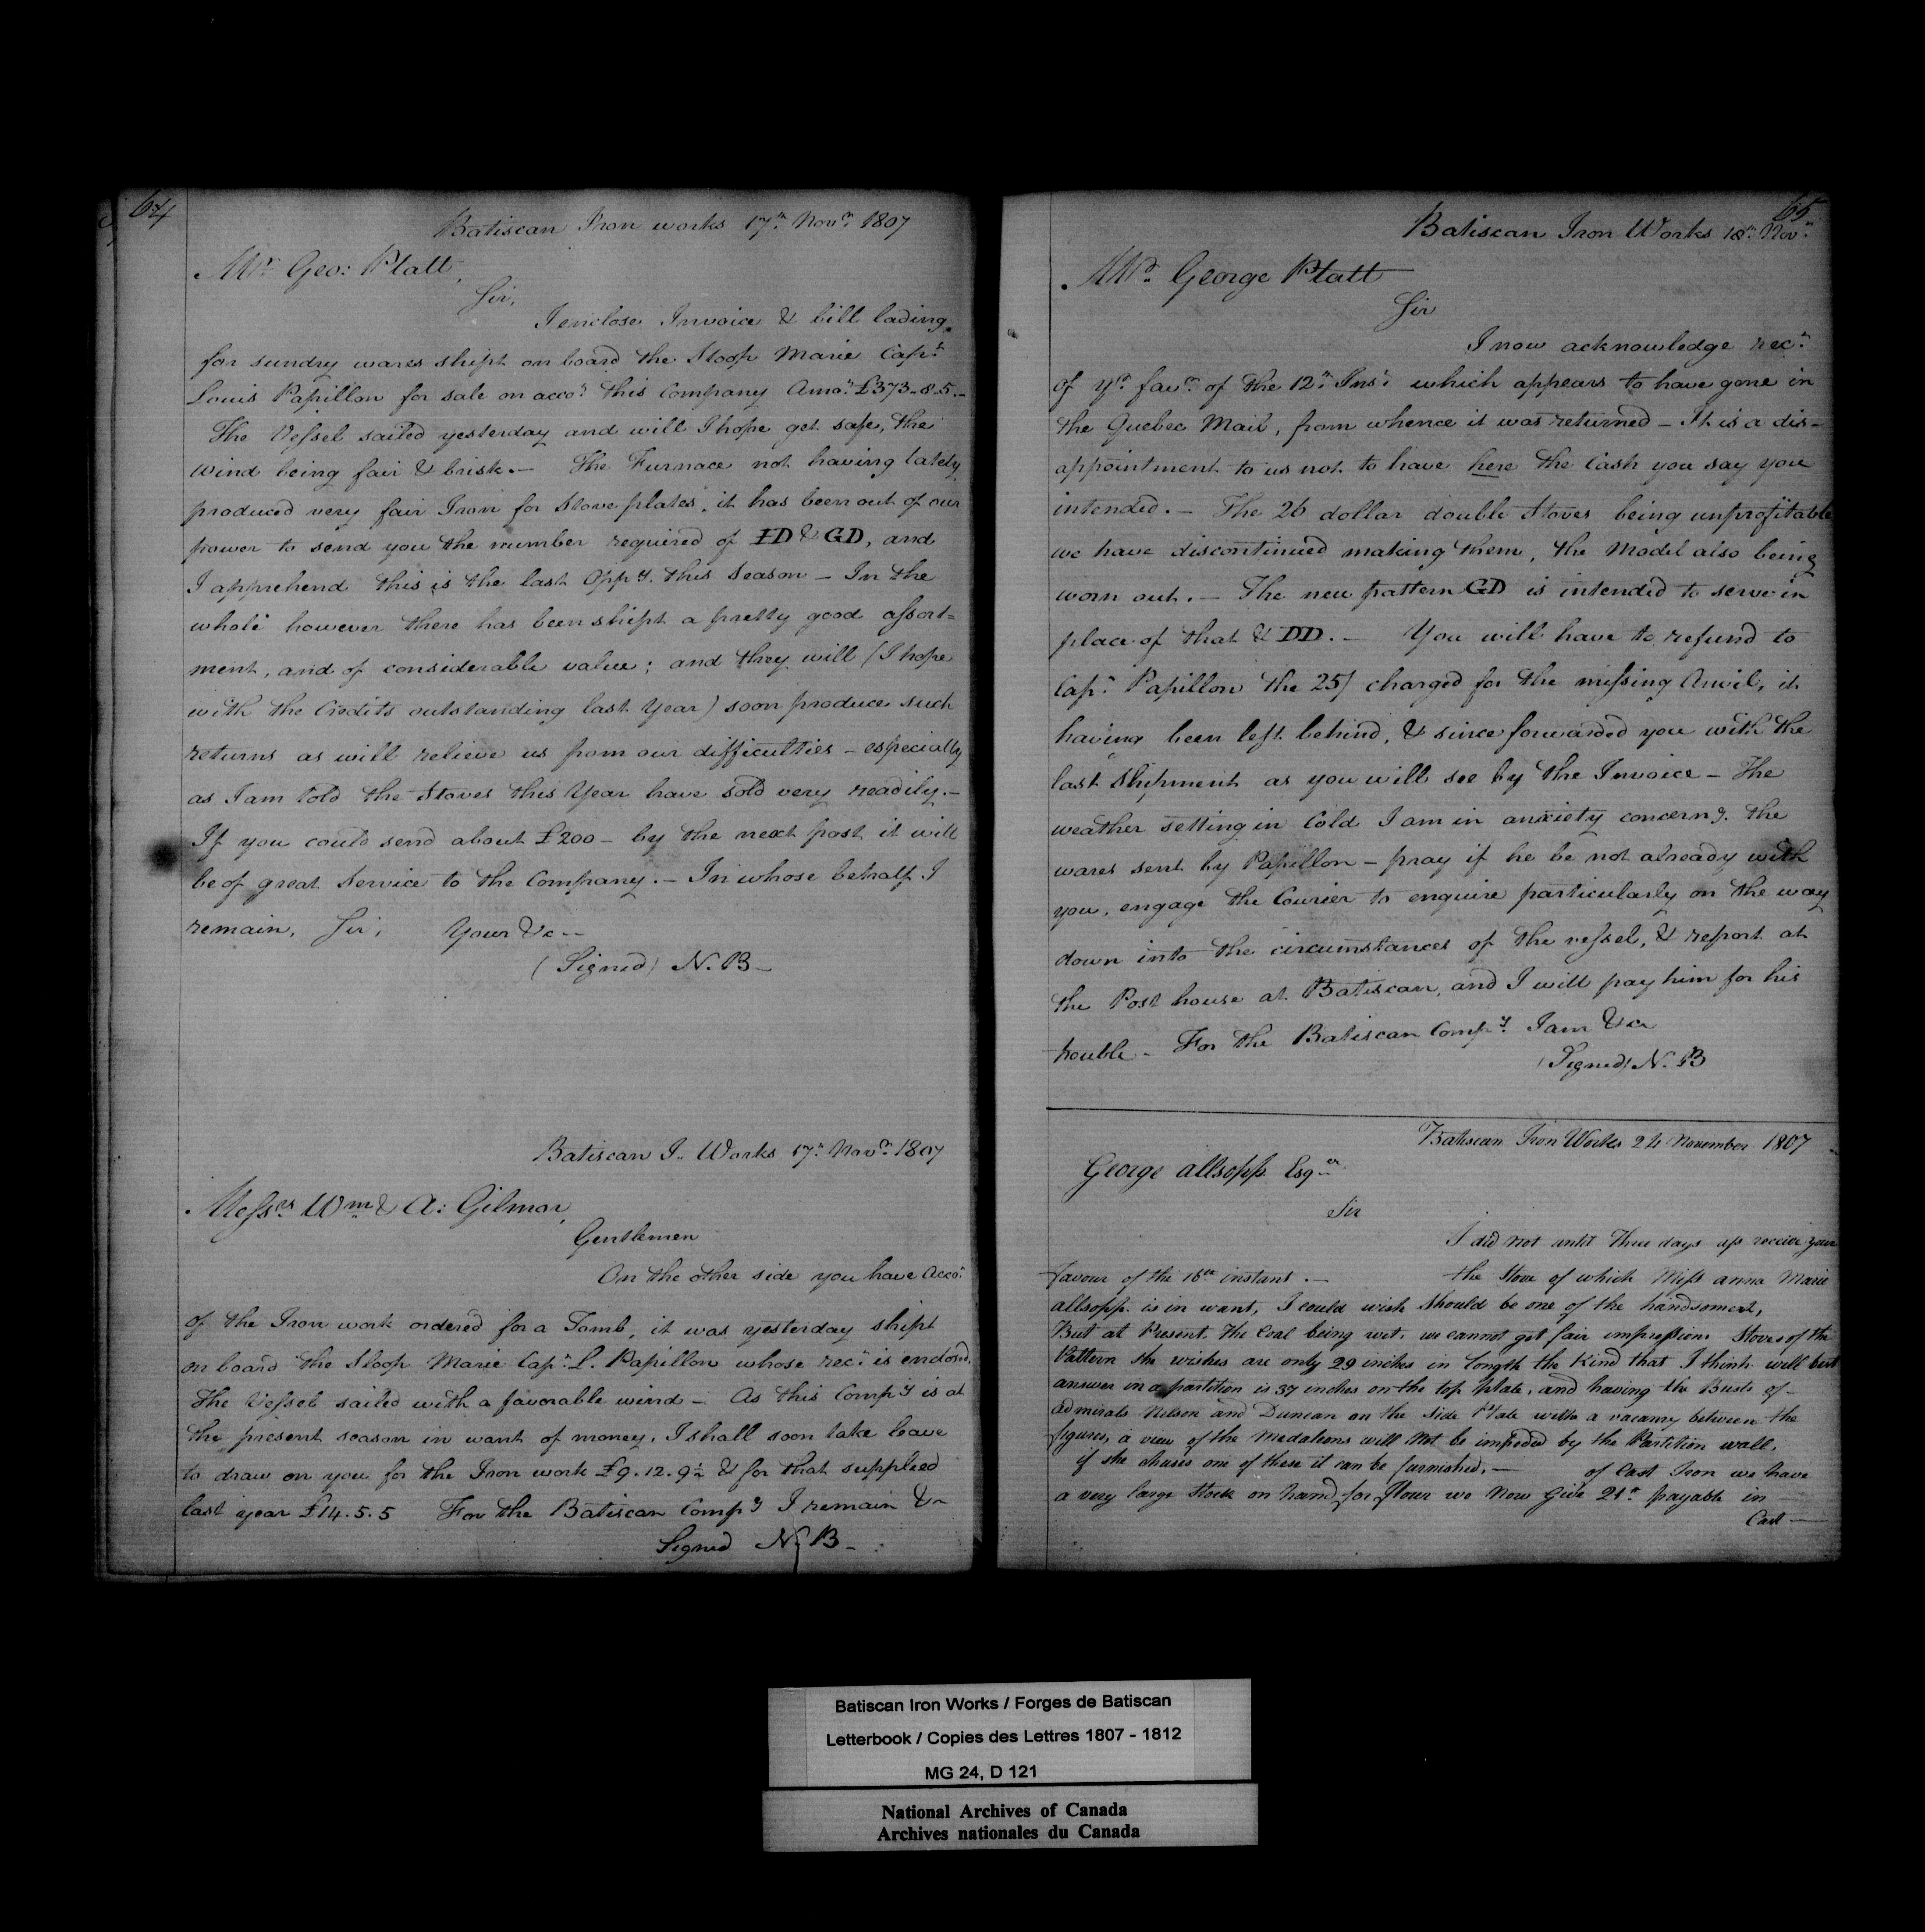 64
Batiscan Iron works 17th Novr 1807
Mr Geo: Platt,
Sir,
I enclose Invoice & bill lading
for sundry wares shipt on board the Sloop Marie Capt
Louis Papillon for sale on accot this Company Amot £373-8-5.-
The Vessel sailed yesterday and will I hope get safe, the
wind being fair & brisk.- The Furnace not having lately
produced very fair Iron for Stove plates, it has been out of our
power to send you the number required of ID & GD, and
I apprehend this is the last Oppy. this Season - In the
whole however there has been shipt a pretty good assort=
ment, and of considerable value; and they will (I hope
with the Credits outstanding last Year) soon produce such
returns as will relieve us from our difficulties - especially
as I am told the Stoves this Year have sold very readily.-
If you could send about £200 - by the next post it will
be of great Service to the Company.- In whose behalf I
remain, Sir, Your &c--
(Signed) N. B-
Batiscan I.. Works 17th Novr 1807
Messrs Wm & A: Gilmor,
Gentlemen
On the other side you have Accot
of the Iron work ordered for a Tomb, it was yesterday shipt
on board the Sloop Marie Capt L. Papillon whose rect is enclosed.
The Vessel sailed with a favorable wind - As this Compy is at
the present season in want of money, I shall soon take leave
to draw on you for the Iron work £9.12.9½ & for that supplied
last year £14.5.5 For the Batiscan Compy I remain &c
Signed N. B-
65
Batiscan Iron Works 18th Novr
Mr. George Platt
Sir
I now acknowledge rect
of yr favr of the 12th Inst which appears to have gone in
the Quebec Mail, from whence it was returned - It is a dis-
appointment to us not to have here the Cash you say you
intended.- The 26 dollar double Stoves being unprofitable
we have discontinued making them, the Model also being
worn out.- The new pattern GD is intended to serve in
place of that & DD.- You will have to refund to
Capt Papillon the 25/ charged for the missing Anvil, it
having been left behind, & since forwarded you with the
last Shipment as you will see by the Invoice - The
weather setting in Cold I am in anxiety concerng. the
wares sent by Papillon - pray if he be not already with
you, engage the Courier to enquire particularly on the way
down into the circumstances of the vessel, & report at
the Post house at Batiscan, and I will pay him for his
trouble - For the Batiscan Compy. I am &c
(Signed) N. B
Batiscan Iron Works 24 November 1807
George Allsopp Esqr
Sir
I did not until three days ago receive your
favour of the 16th instant.- the Stove of which Miss Anna Marie
Allsopp. is in want, I could wish should be one of the handsomest,
But at Present The Coal being wet, we cannot get fair impressions Stoves of the
Pattern she wishes are only 29 inches in length the Kind that I think will best
answer in a partition is 37 inches on the top plate, and having the Busts of-
Admirals Nelson and Duncan on the Side Plate with a vacancy between the
figures, a view of the Medalions will not be impeded by the Partition wall,
if she chuses one of these it can be furnished,- of Cast Iron we have
a very large Stock on hand, for flour we now give 21/ payable in-
Cast-
Batiscan Iron Works / Forges de Batiscan
Letterbook / Copies des Lettres 1807 - 1812
MG 24, D 121
National Archives of Canada
Archives nationales du Canada